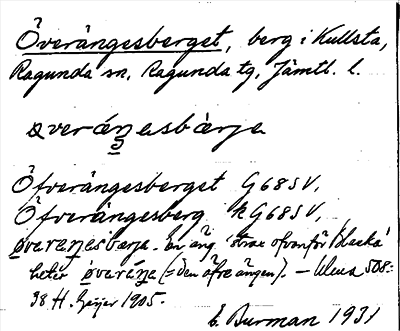 Överängesberget, berg i Kullsta,
Ragunda sn, Ragunda tg, Jämtl. l.
øveráŋ̠esbærja
Öfverängesberget G 68 SV,
Öfverängesberg k G 68 SV,
øveräŋesbærja. En äng 'strax ofvanför Blacka'
heter øveráŋa (= den öfre ängen). – Uleus 508:
38 H. Geijer 1905.
E. Burman 1931